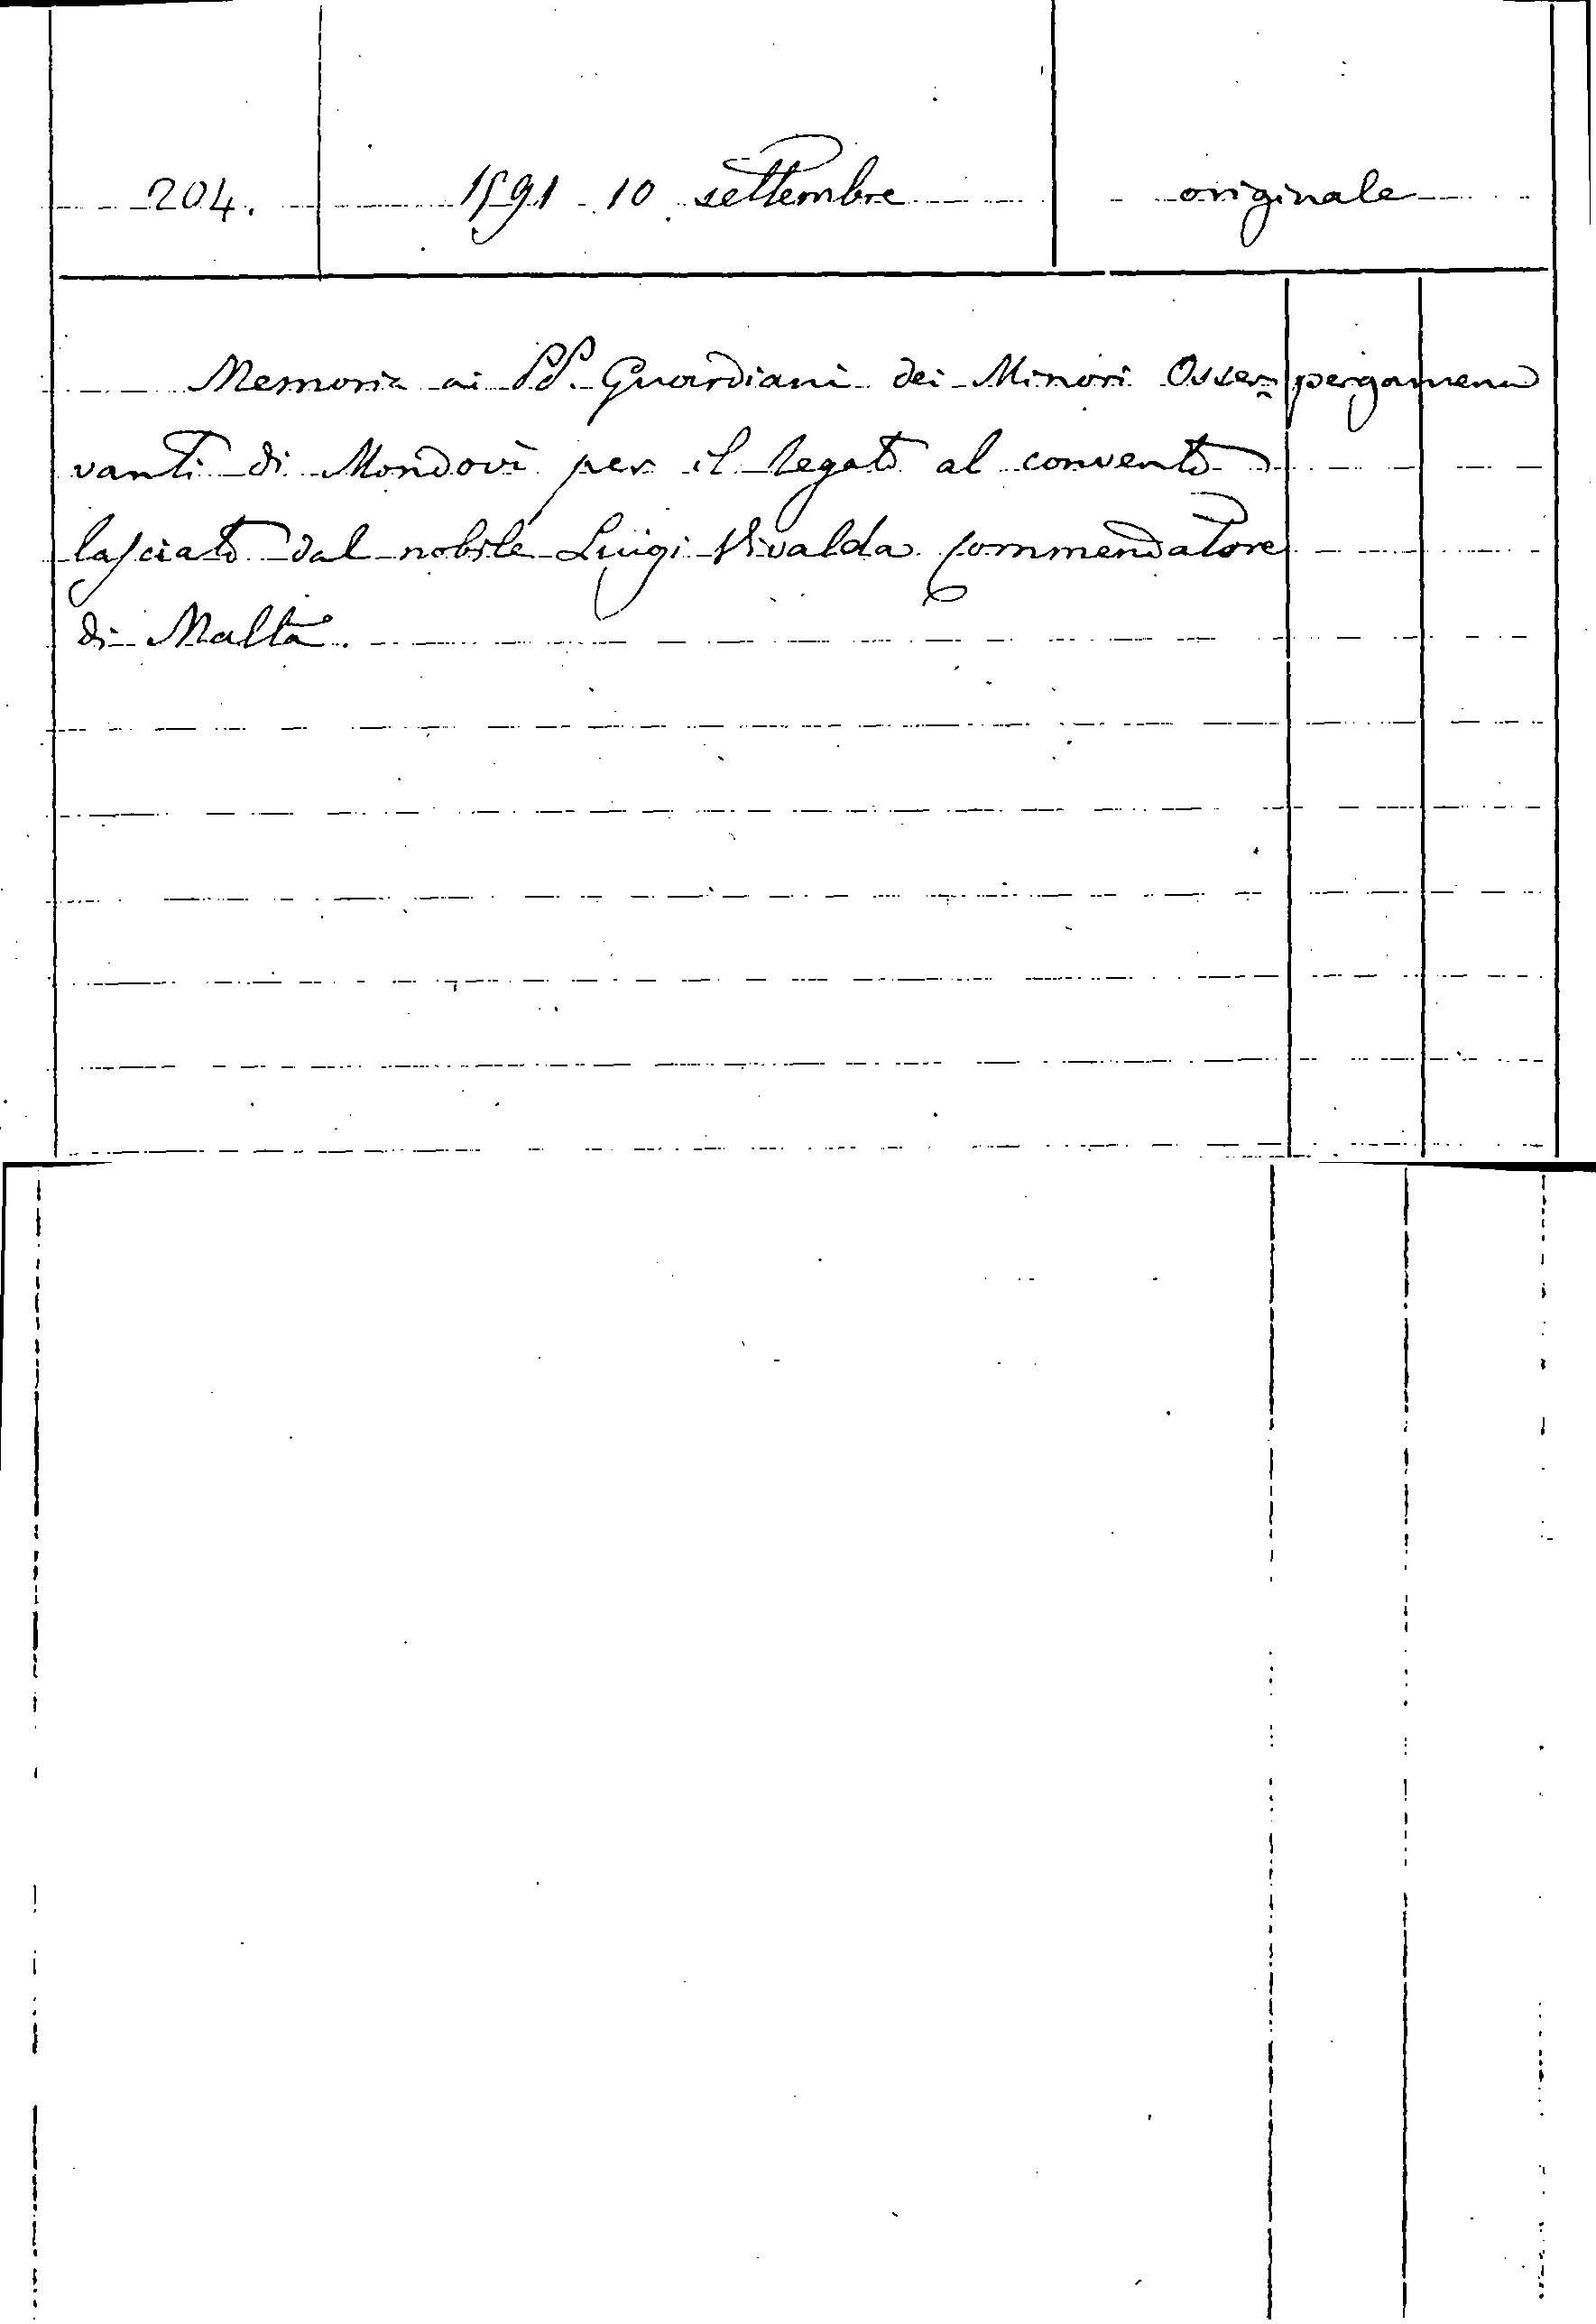 204. 1591 10 settembre originale
Memoria ai PP. Guardiani dei Minori Osser= pergamena
vanti di Mondovì per il legato al convento
lasciato dal nobile Luigi Vivalda Commendatore
di Malta.